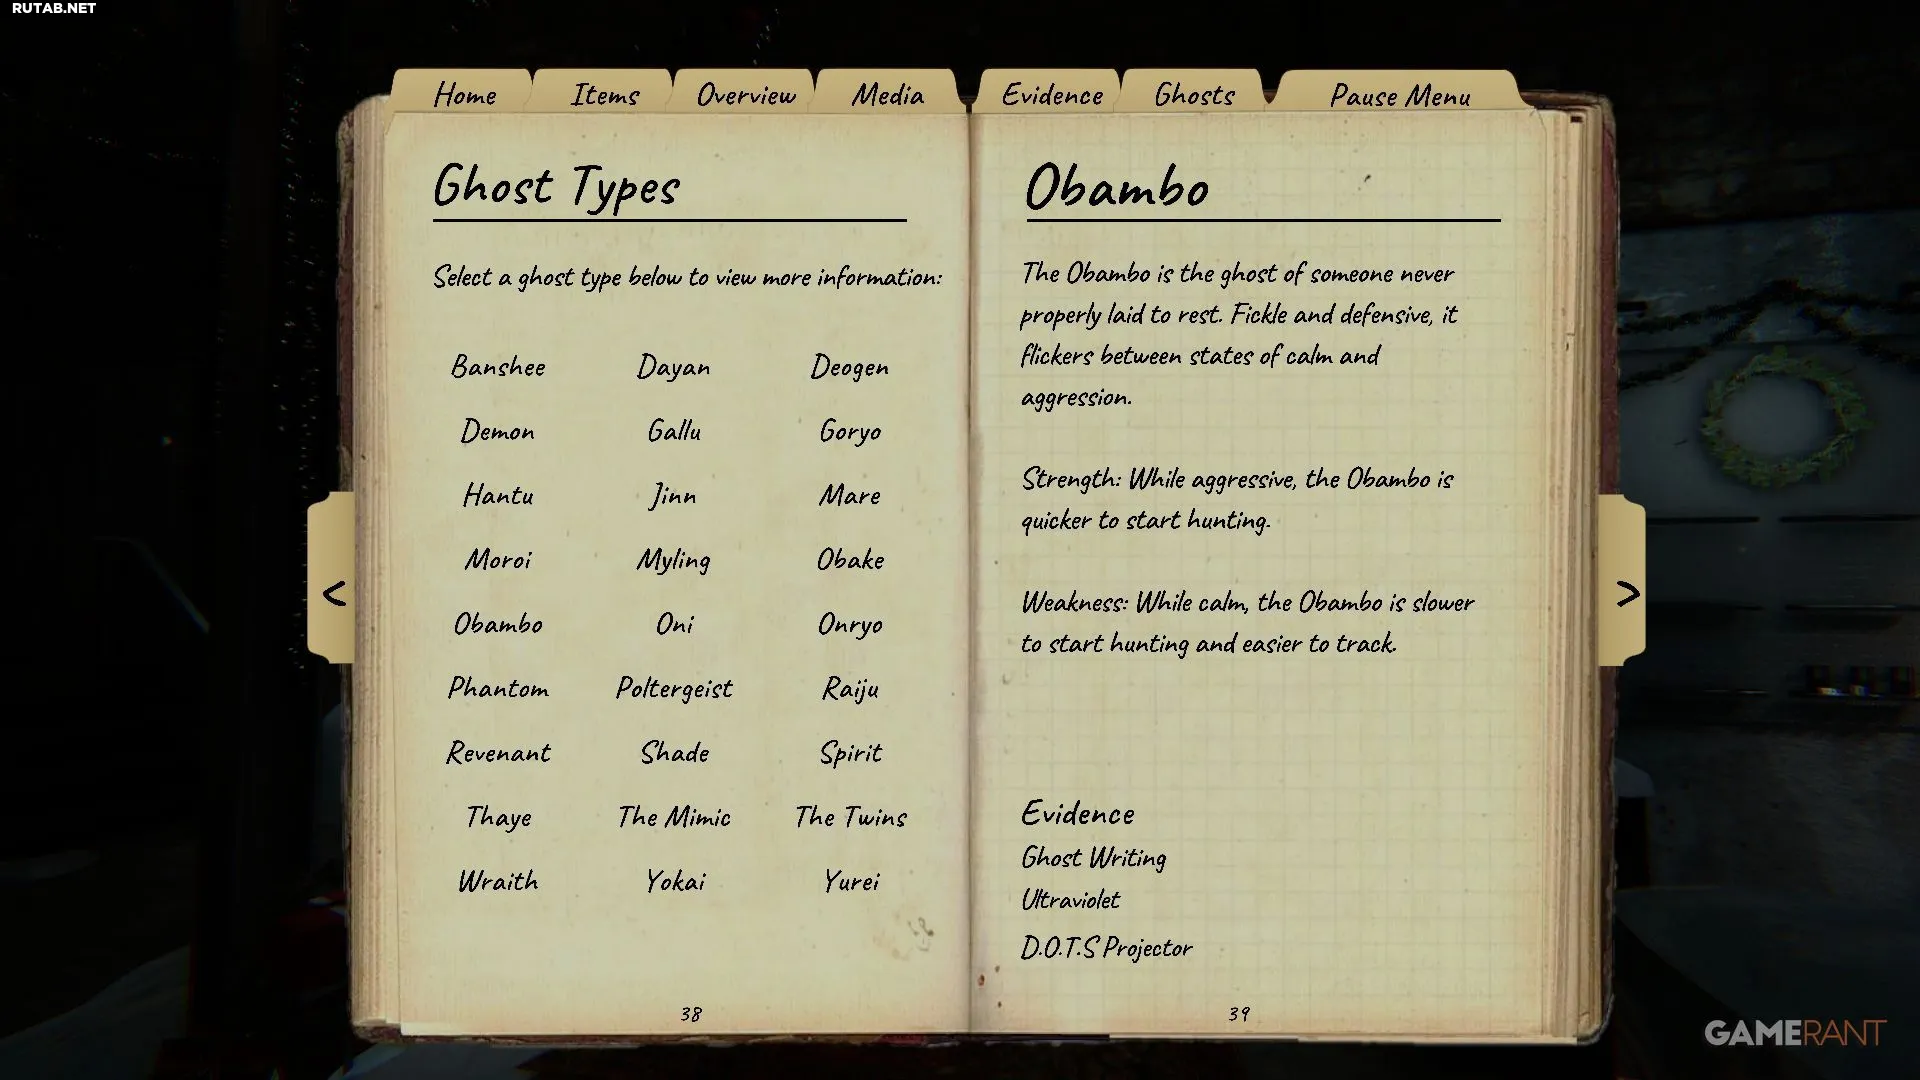 RUTAB.NET
Home Items Overview Media Evidence Ghosts Pause Menu
Ghost Types
Select a ghost type below to view more information:
Banshee Dayan Deogen
Demon Gallu Goryo
Hantu Jinn Mare
Moroi Myling Obake
Obambo Oni Onryo
Phantom Poltergeist Raiju
Revenant Shade Spirit
Thaye The Mimic The Twins
Wraith Yokai Yurei
38
<
Obambo
The Obambo is the ghost of someone never
properly laid to rest. Fickle and defensive, it
flickers between states of calm and
aggression.
Strength: While aggressive, the Obambo is
quicker to start hunting.
Weakness: While calm, the Obambo is slower
to start hunting and easier to track.
Evidence
Ghost Writing
Ultraviolet
D.O.T.S Projector
39
>
GAMERANT